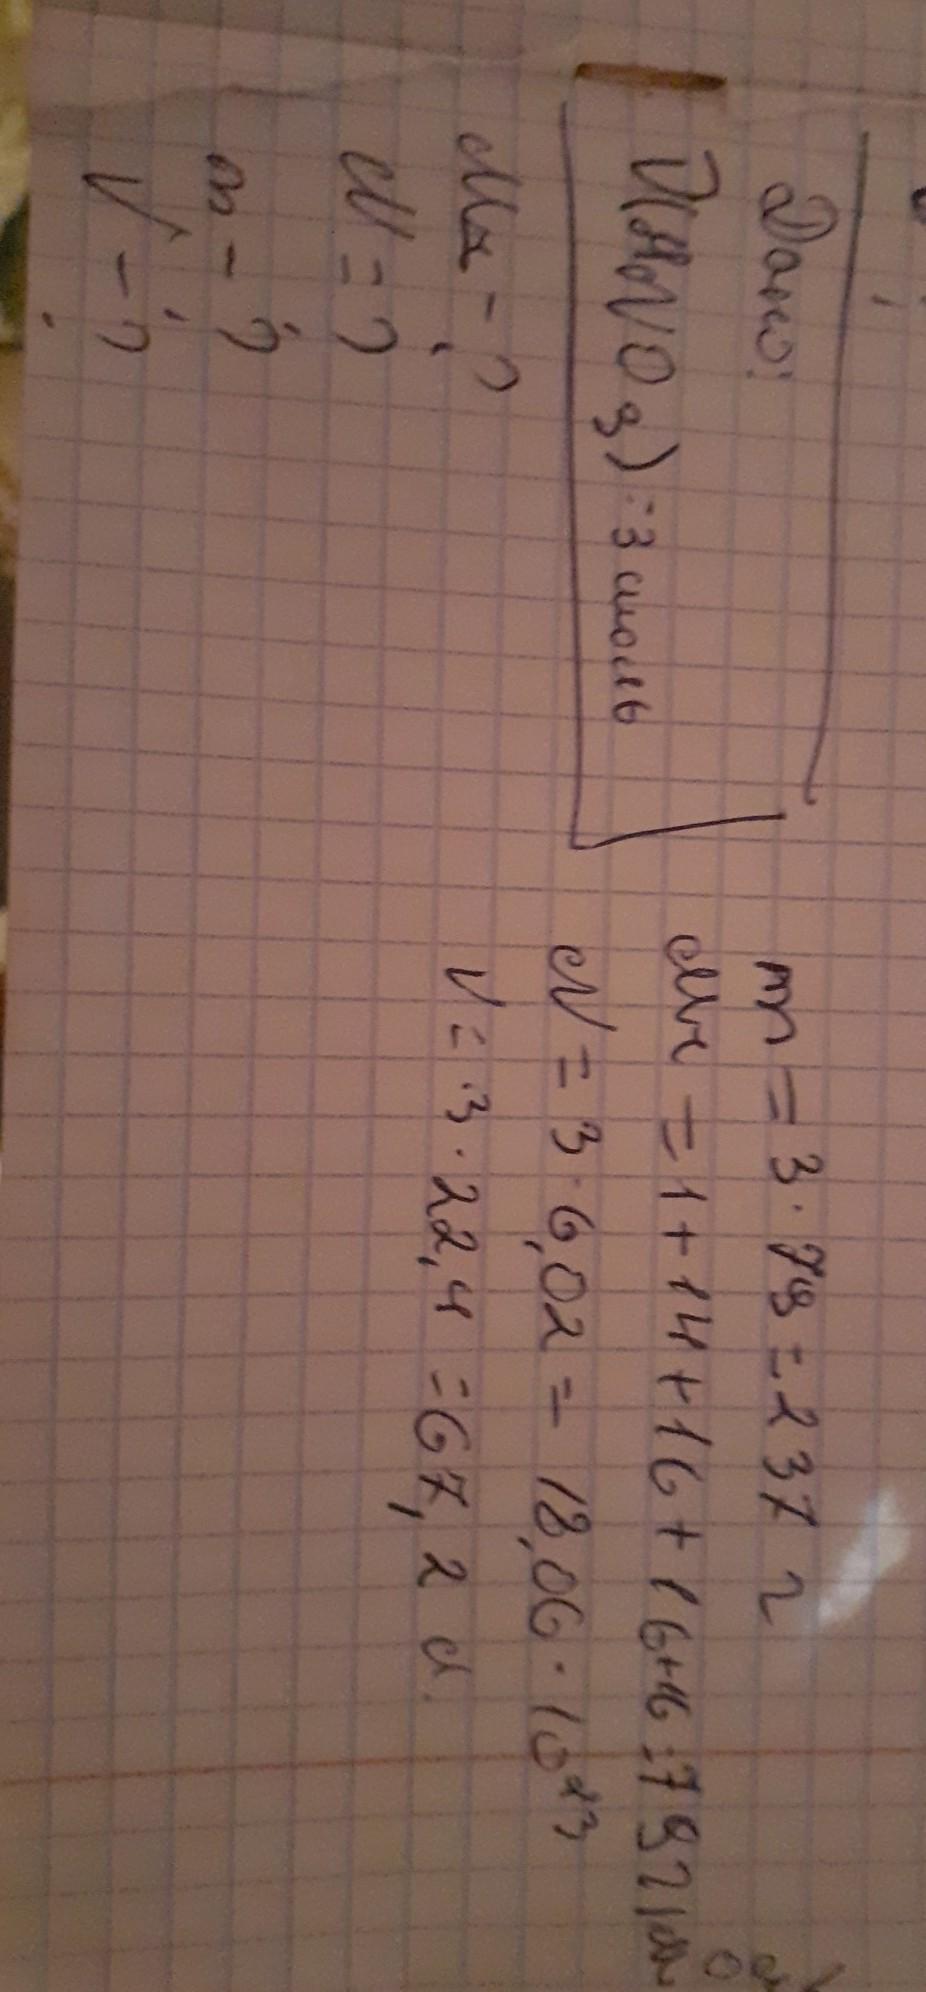 Дано:
V(HNO3)=3 моль
Mr-?
N=?
m-?
V-?
m = 3·79=237 г
Mr =1+14+16+16+16=79г/м
N = 3·6,02= 18,06·10²³
V=3·22,4=67,2 л.